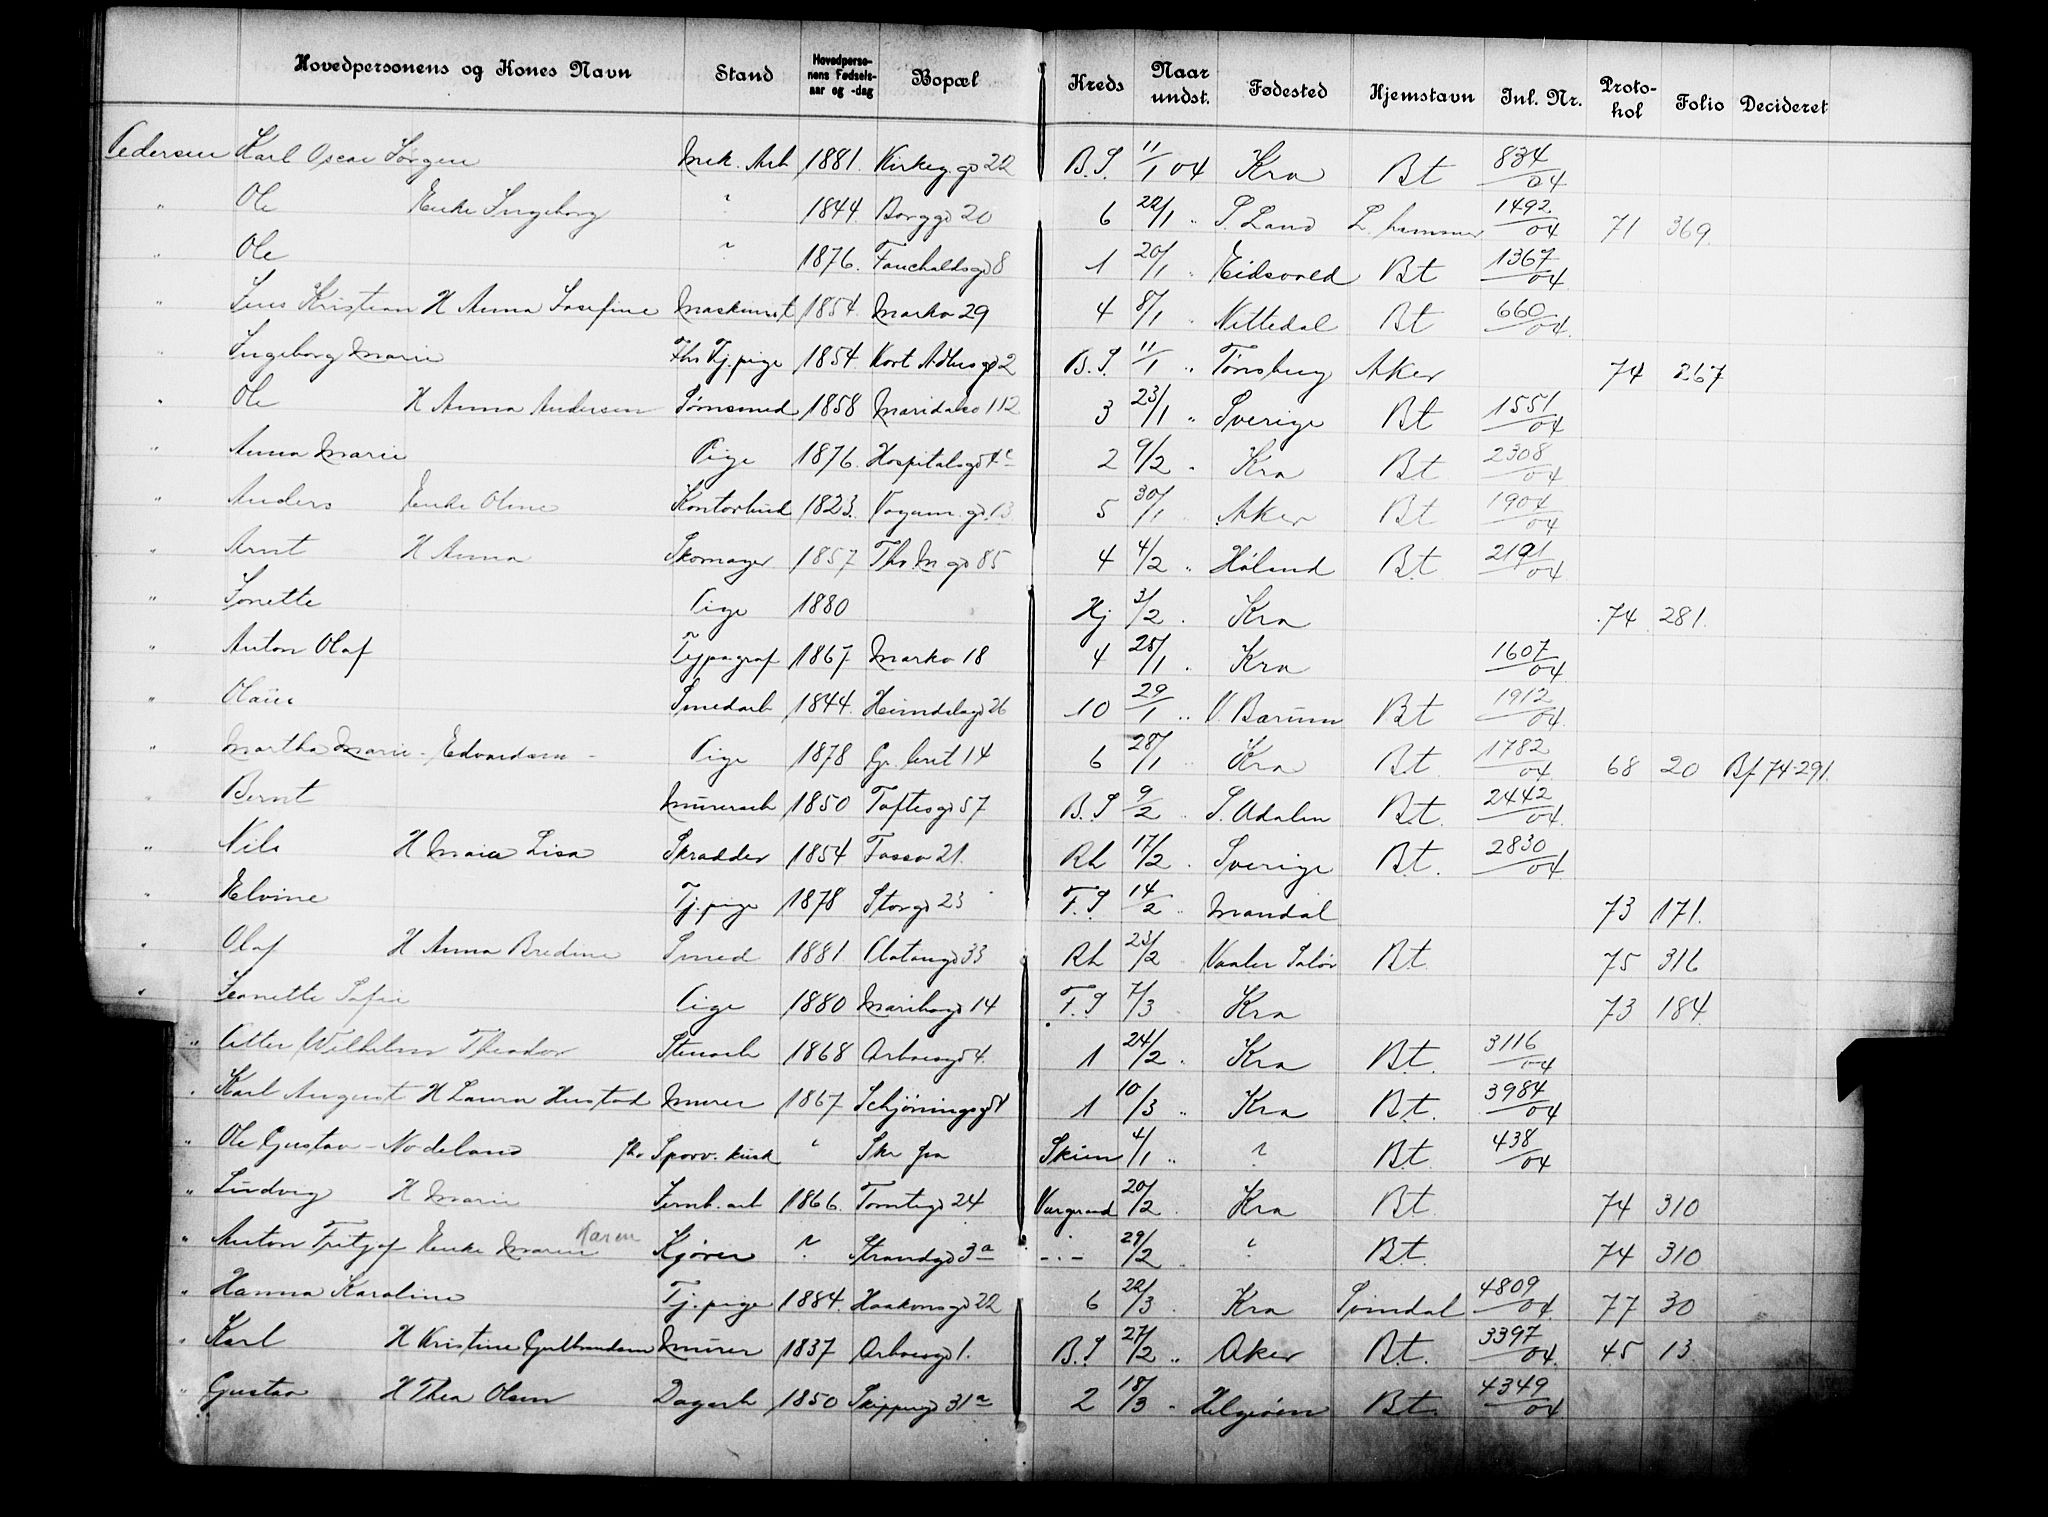 Hovedpersonens og Kones Navn Stand Hovedperso-nens Fødsels-aar og -dag Bopæl Kreds Naar undst. Fødested Hjemstavn Inl. Nr. Proto-kol Folio Decideret
Pedersen Karl Oscar Jørgen Mek. Arb 1881. Kirkeg. gd 22 B.S. 11/1 04 Kra Bt 834/04
" Ole Enke Ingeborg " 1844. Borggd 20 6 22/1 " S. Land L. hammer 1492/04 71 369.
" Ole " 1876. Fauchaldsgd 8 1 20/1 " Eidsvold Bt 1367/04
" Jens Kristian H Anna Josefine Maskinist 1854. Markv 29 4 8/1 " Nittedal Bt 660/04.
" Ingeborg Marie Fhv Tj. pige 1854. Kort Adlers gd 2 B.S. 11/1 " Tønsberg Aker 74 267
" Ole H Anna Andersen Jernsmed 1858 Maridalsv 112 3 23/1 " Sverige Bt 1551/04
" Anna Marie Pige 1876. Hospitalsgd 4c 2 9/2 " Kra Bt 2308/04
" Anders Enke Oline Kontorbud 1823. Vogtm. gd. 13 5 30/1 " Aker Bt 1904/04
" Arnt H Anna Skomager 1857 Ths. M gd 85 4 4/2 " Høland Bt. 2191/04
" Jonette Pige 1880 Hj 3/2 . Kra 74 281.
" Anton Olaf Typograf 1867 Markv 18 4 25/1 " Kra 1607/04
" Olaus Smedarb 1844. Heimdalsgd 26 10 29/1 " V. Bærum Bt 1912/04.
" Martha Marie - Edvardsen - Pige 1878 Gr. leret 14 6 28/1 " Kra B.t. 1782/04 68 20 Bf 74-291.
" Bernt Murerarb 1850 Toftesgd 57 B.S 9/2 " S. Odalen B.t. 2442/04.
" Nils H Maria Lisa Skrædder 1854 Fossv 21. Rh 17/2 . Sverige B.t. 2830/04
" Elvine Tj. pige 1878 Storgd 23 F.S 14/2 " Mandal 73 171.
" Olaf H Anna Bredine Smed 1881. Platougd 33 Rh 23/2 . Vaaler Solør B.t. 75 316
" Jeanette Sofie Pige 1880 Maribogd 14 F.S 7/3 . Kra 73 184.
" Petter Wilhelm Theodor Stenarb 1868 Orboesgd 4. 1 24/2 . Kra B.t. 3116/04
" Karl August H Laura Hustad Murer 1867. Schjøningsgd 1 10/3 " Kra B.t. 3984/04
" Ole Gustav - Nodeland fhv Sporv. kusk " Ske fra Skien 4/1 " ? B.t. 438/04
" Ludvig H Marie Jernb. arb 1866. Tomtegd 24 Vargrund 20/2 . Kra B.t. 74 310
" Anton Fritjof Enke Maren Karen Kjører ? Strandgd 3a -·- 29/2 . ? B.t. 74 310
" Hanna Karoline Tj. pige 1884. Haakonsgd 22 6 22/3 . Kra 4809/04. 77 30
" Karl H Kristine Gulbrandsen Murer 1837 Orboesgd 1. B.S 27/2 " Aker B.t. 3397/04. 45 13
" Gustav H Thea Olsen Dagarb 1850 Skipperg 31a 2 18/3 " Helgeøen B.t. 4349/04